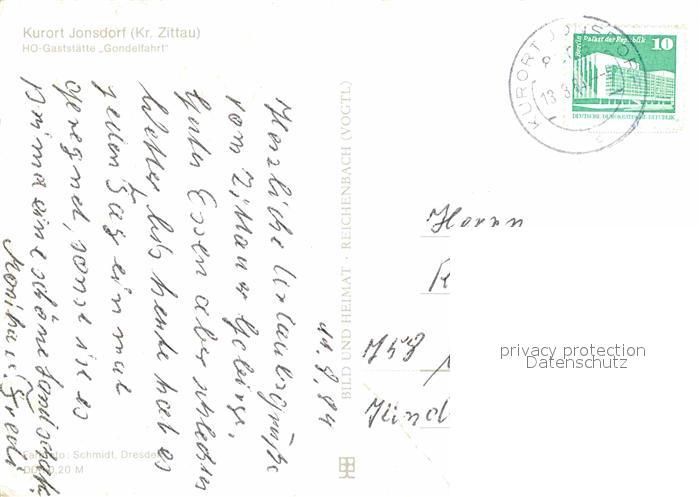 Kurort Jonsdorf (Kr. Zittau)
HO-Gaststätte „Gondelfahrt"
11.8.84
Herzliche Urlaubsgrüße
vom Zittauer Gebirge.
Gutes Essen aber schlechtes
Wetter bis heute hat es
jeden Tag einmal
geregnet, sonst ist es
prima eine schöne Landschaft.
Monika
BILD UND HEIMAT · REICHENBACH (VOGTL)
Farbfoto: Schmidt, Dresden
0,20 M
KURORT JONSDORF
13.8.84
Berlin Palast der Republik 10
DEUTSCHE DEMOKRATISCHE REPUBLIK
Herrn
privacy protection
Datenschutz